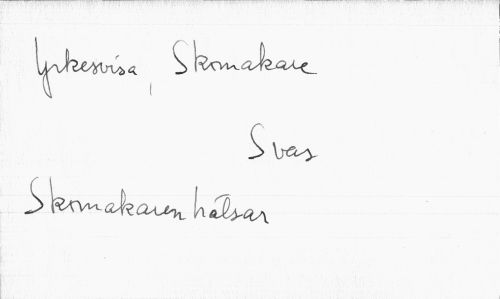 Yrkesvisa, Skomakare
Svar
Skomakaren hälsar